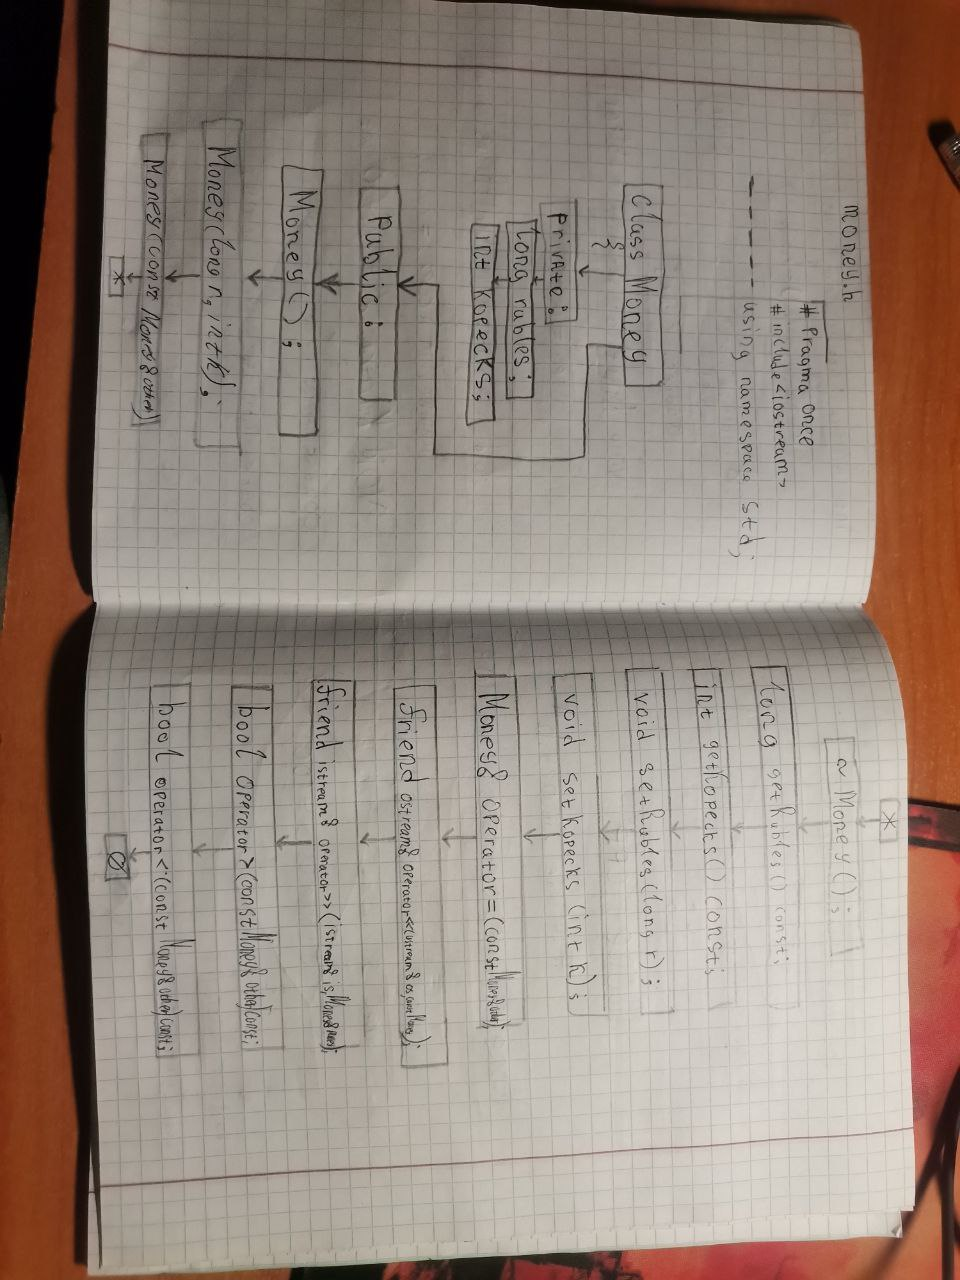 money.h
# Pragma once
# include <iostream>
using namespace std;
class Money
{
private:
long rubles;
int kopecks;
Public:
Money();
Money(long r, int k);
Money(const Money& other)
*
*
~Money();
long getRubles() const;
int getKopecks() const;
void setRubles(long r);
void setKopecks(int k);
Money& operator=(const Money& other);
friend ostream& operator<<(ostream& os, const Money);
friend istream& operator>>(istream& is, Money&
bool operator>(const Money& other)const;
bool operator<(const Money& other)const;
∅